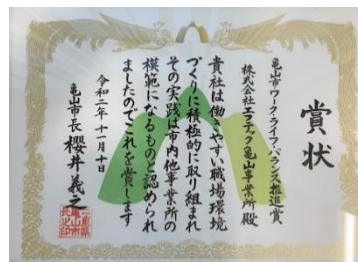 賞状
亀山市ワーク・ライフ・バランス推進賞
株式会社エラテック亀山事業所殿
貴社は働きやすい職場環境
づくりに積極的に取り組まれ
その実践は市内他事業所の
模範になるものと認められ
ましたのでこれを賞します
令和二年十一月十日
亀山市長 櫻井義之
三重県
亀山市
長之印